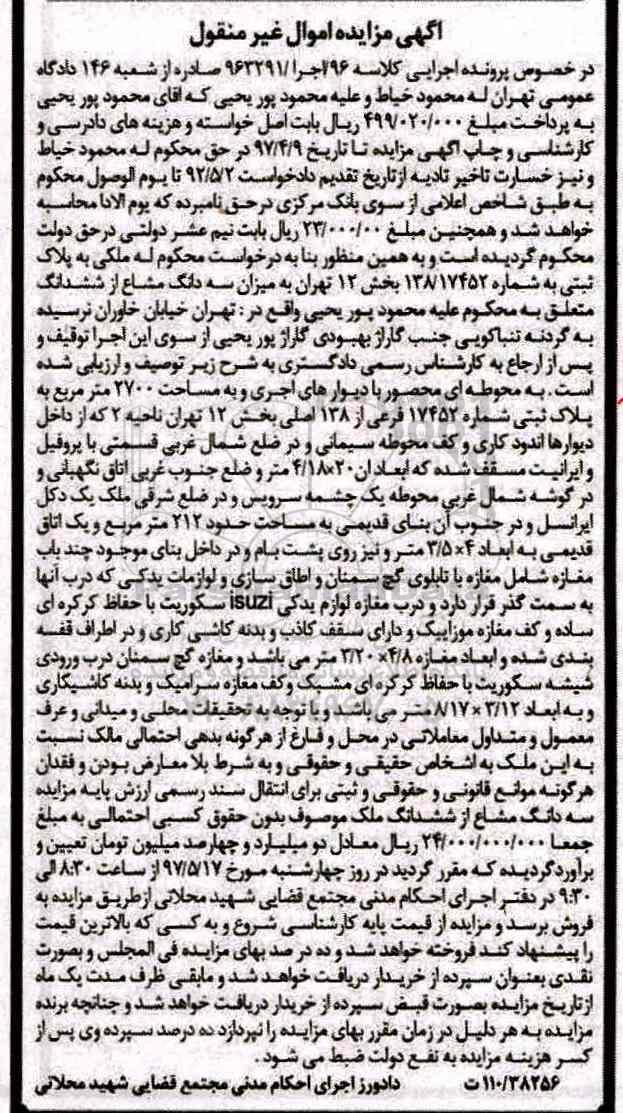 آگهی مزایده اموال غیر منقول
در خصوص پرونده اجرایی کلاسه ۹۶اجرا/۹۶۳۲۹۱ صادره از شعبه ۱۴۶ دادگاه
عمومی تهران له محمود خیاط و علیه محمود پور یحیی که اقای محمود پور یحیی
به پرداخت مبلغ ۴۹۹/۰۲۰/۰۰۰ ریال بابت اصل خواسته و هزینه های دادرسی و
کارشناسی و چاپ اگهی مزایده تا تاریخ ۹۷/۴/۹ در حق محکوم له محمود خیاط
و نیز خسارت تاخیر تادیه ازتاریخ تقدیم دادخواست ۹۲/۵/۲ تا یوم الوصول محکوم
به طبق شاخص اعلامی از سوی بانک مرکزی درحق نامبرده که یوم الادا محاسبه
خواهد شد و همچنین مبلغ ۲۳/۰۰۰/۰۰ ریال بابت نیم عشر دولتی درحق دولت
محکوم گردیده است و به همین منظور بنا به درخواست محکوم له ملکی به پلاک
ثبتی به شماره ۱۳۸/۱۷۴۵۲ بخش ۱۲ تهران به میزان سه دانگ مشاع از ششدانگ
متعلق به محکوم علیه محمود پور یحیی واقع در : تهران خیابان خاوران نرسیده
به گردنه تنباکویی جنب گاراژ بهبودی گاراژ پور یحیی از سوی این اجرا توقیف و
پس از ارجاع به کارشناس رسمی دادگستری به شرح زیر توصیف و ارزیابی شده
است . به محوطه ای محصور با دیوار های اجری و به مساحت ۲۷۰۰ متر مربع به
پلاک ثبتی شماره ۱۷۴۵۲ فرعی از ۱۳۸ اصلی بخش ۱۲ تهران ناحیه ۲ که از داخل
دیوارها اندود کاری و کف محوطه سیمانی و در ضلع شمال غربی قسمتی با پروفیل
و ایرانیت مسقف شده که ابعاد ان ۲۰×۴/۱۸ متر و ضلع جنوب غربی اتاق نگهبانی و
در گوشه شمال غربی محوطه یک چشمه سرویس و در ضلع شرقی ملک یک دکل
ایرانسل و در جنوب آن بنای قدیمی به مساحت حدود ۲۱۲ متر مربع و یک اتاق
قدیمی به ابعاد ۴×۳/۵ متر و نیز روی پشت بام و در داخل بنای موجود چند باب
مغازه شامل مغازه با تابلوی گچ سمنان و اطاق سازی و لوازمات یدکی که درب آنها
به سمت گذر قرار دارد و درب مغازه لوازم یدکی isuzi سکوریت با حفاظ کرکره ای
ساده و کف مغازه موزاییک و دارای سقف کاذب و بدنه کاشی کاری و در اطراف قفسه
بندی شده و ابعاد مغازه ۴/۸×۳/۲۰ متر می باشد و مغازه گچ سمنان درب ورودی
شیشه سکوریت با حفاظ کرکره ای مشبک و کف مغازه سرامیک و بدنه کاشیکاری
و به ابعاد ۳/۱۲×۸/۱۷ متر می باشد و با توجه به تحقیقات محلی و میدانی و عرف
معمول و متداول معاملاتی در محل و فارغ از هرگونه بدهی احتمالی مالک نسبت
به این ملک به اشخاص حقیقی و حقوقی و به شرط بلا معارض بودن و فقدان
هرگونه موانع قانونی و حقوقی و ثبتی برای انتقال سند رسمی ارزش پایه مزایده
سه دانگ مشاع از ششدانگ ملک موصوف بدون حقوق کسبی احتمالی به مبلغ
جمعا ۲۴/۰۰۰/۰۰۰/۰۰۰ ریال معادل دو میلیارد و چهارصد میلیون تومان تعیین و
برآورد گردیده که مقرر گردید در روز چهارشنبه مورخ ۹۷/۵/۱۷ از ساعت ۸:۳۰ الی
۹:۳۰ در دفتر اجرای احکام مدنی مجتمع قضایی شهید محلاتی ازطریق مزایده به
فروش برسد و مزایده از قیمت پایه کارشناسی شروع و به کسی که بالاترین قیمت
را پیشنهاد کند فروخته خواهد شد و ده در صد بهای مزایده فی المجلس و بصورت
نقدی بعنوان سپرده از خریدار دریافت خواهد شد و مابقی ظرف مدت یک ماه
ازتاریخ مزایده بصورت قبض سپرده از خریدار دریافت خواهد شد و چنانچه برنده
مزایده به هر دلیل در زمان مقرر بهای مزایده را نپردازد ده درصد سپرده وی پس از
کسر هزینه مزایده به نفع دولت ضبط می شود .
۱۱۰/۳۸۲۵۶ ت دادورز اجرای احکام مدنی مجتمع قضایی شهید محلاتی